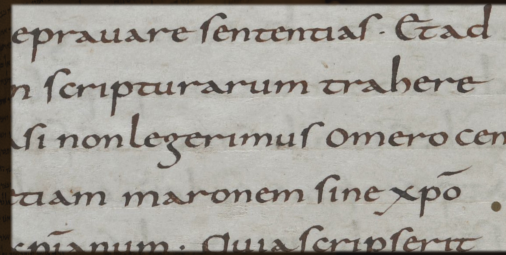 eprauare sententias. Et ad
n scripturarum trahere
si non legerimus omero cen
etiam maronem sine xp̄o
Quia scripserit